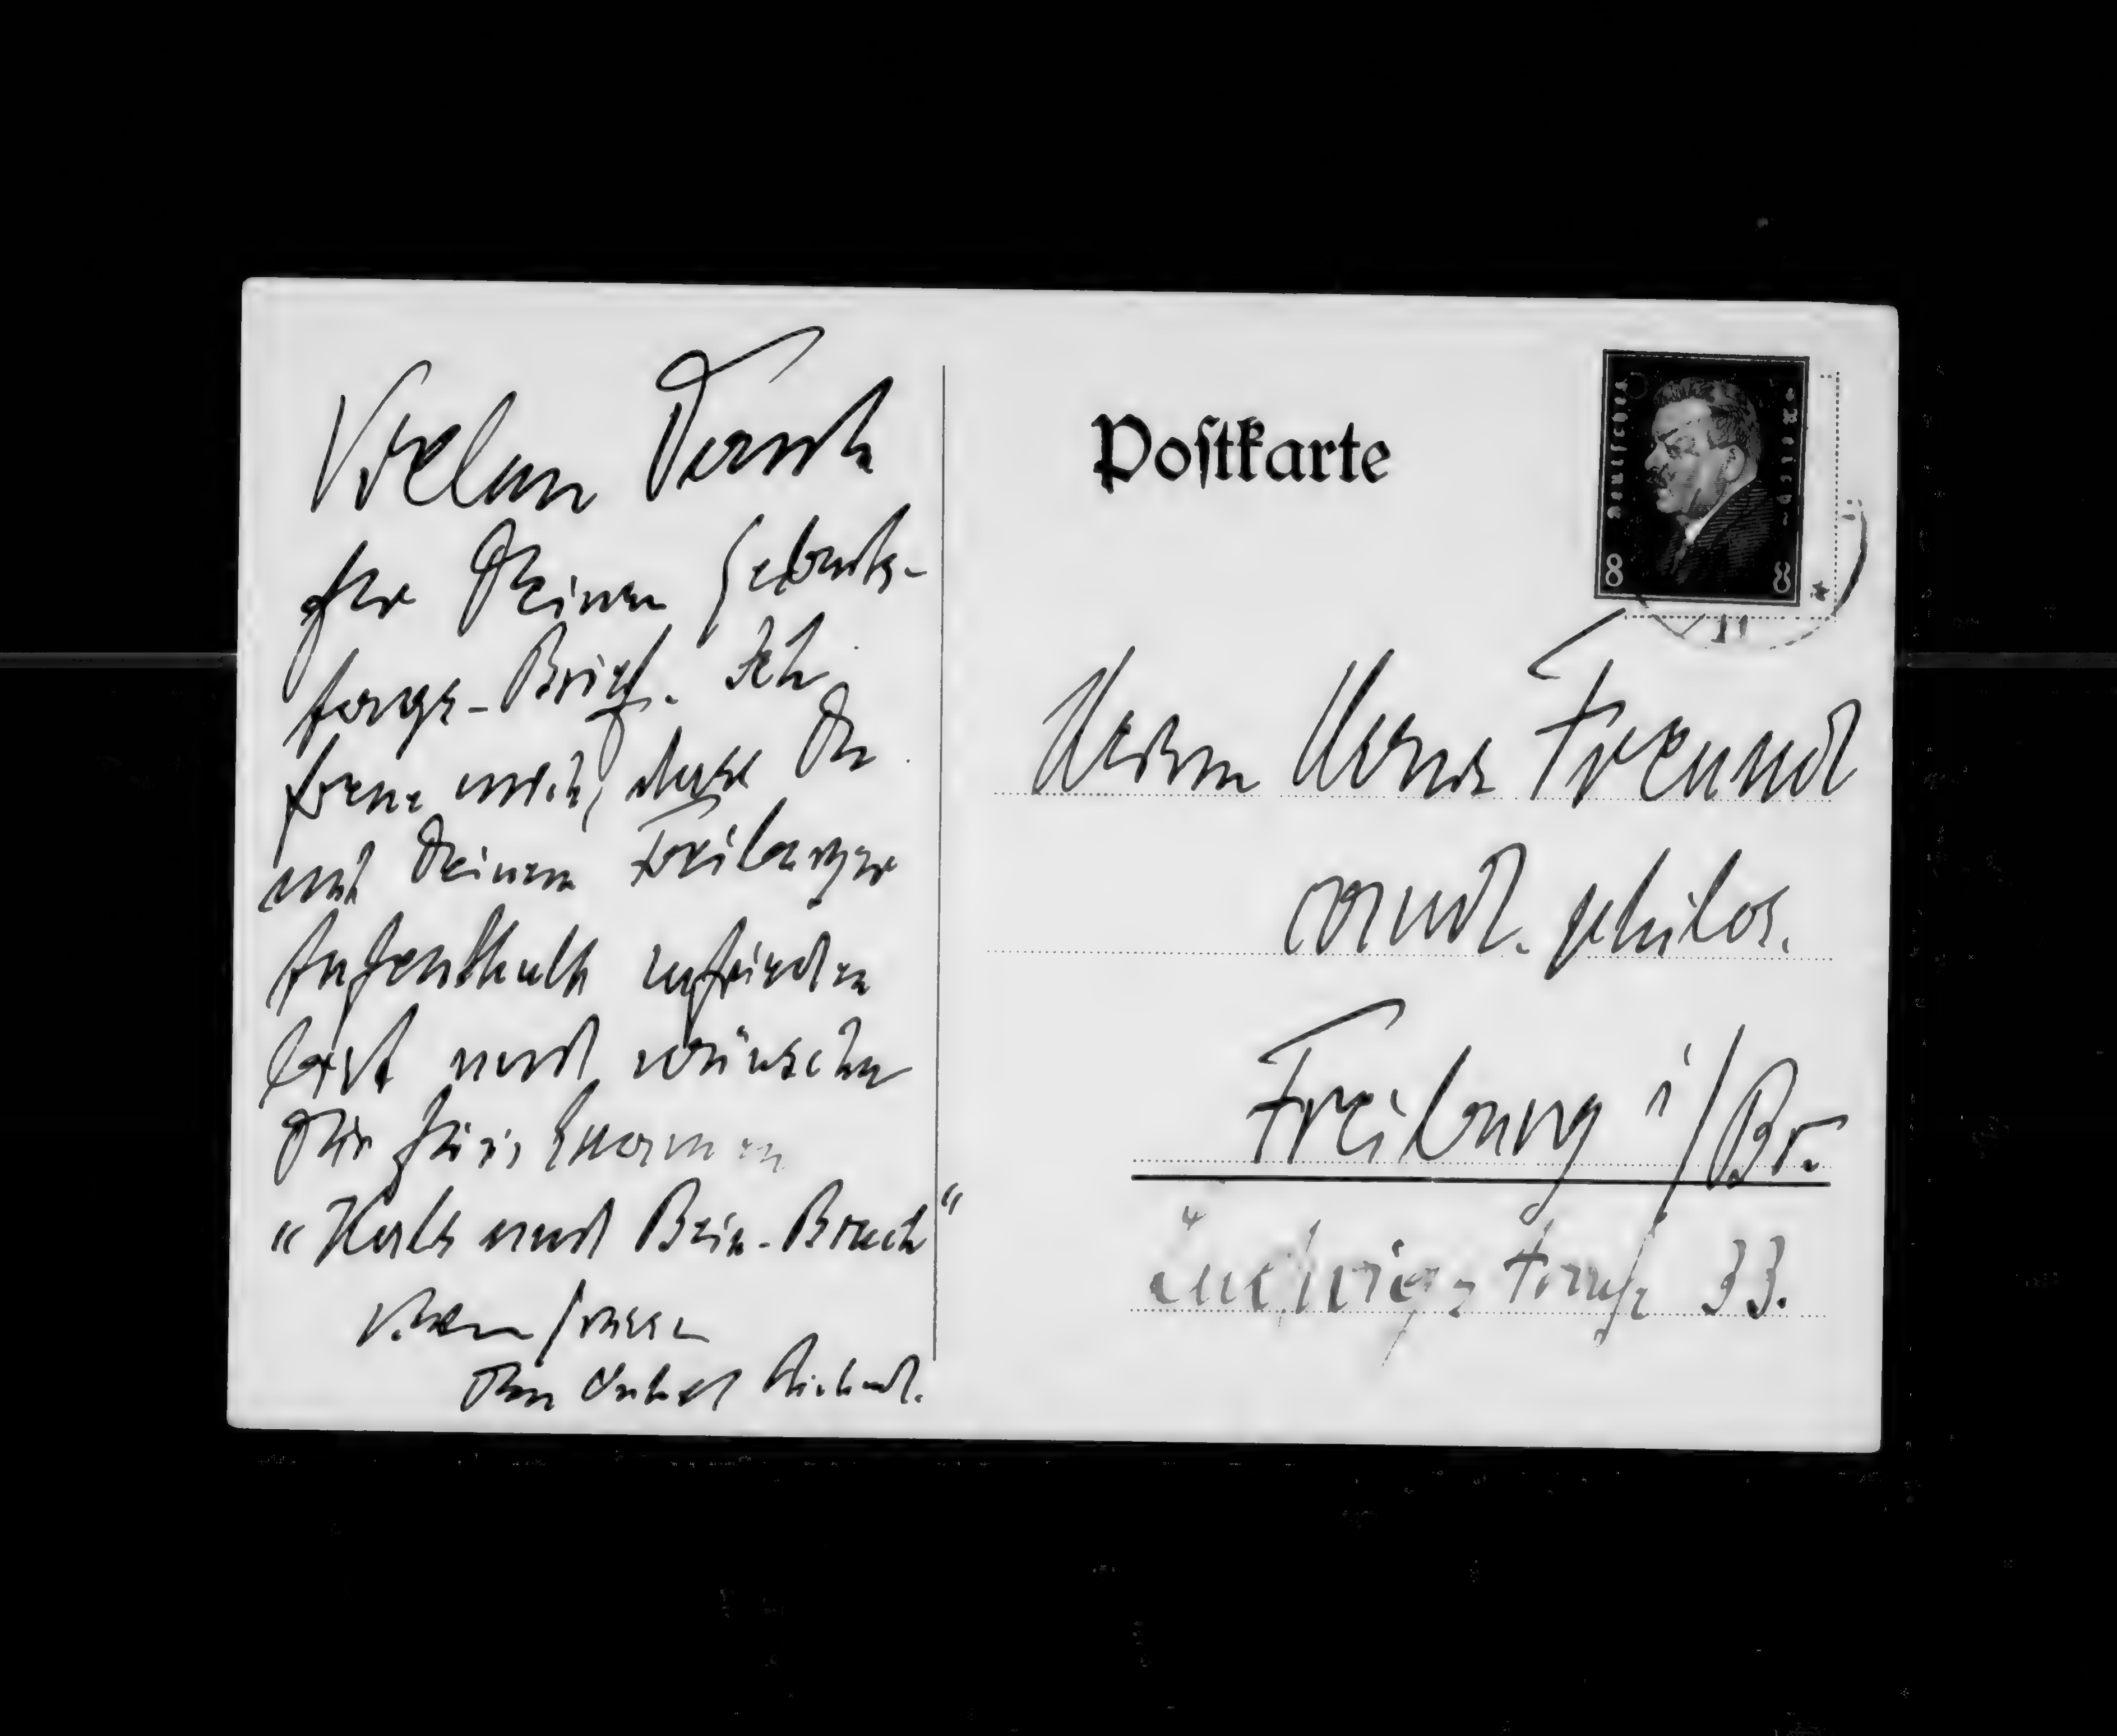 Vielen Dank
für Deinen Geburts-
tags-Brief. Ich
freue mich, dass Du
mit Deinem Freiburger
Aufenthalt zufrieden
bist und wünsche
Dir für's Examen
„Hals und Bein-Bruch“
Dein Onkel Richard.
Postkarte
Deutsches Reich
8 8
Herrn Hans Freund
cand. philos.
Freiburg i/Br.
Ludwigstraße 33.